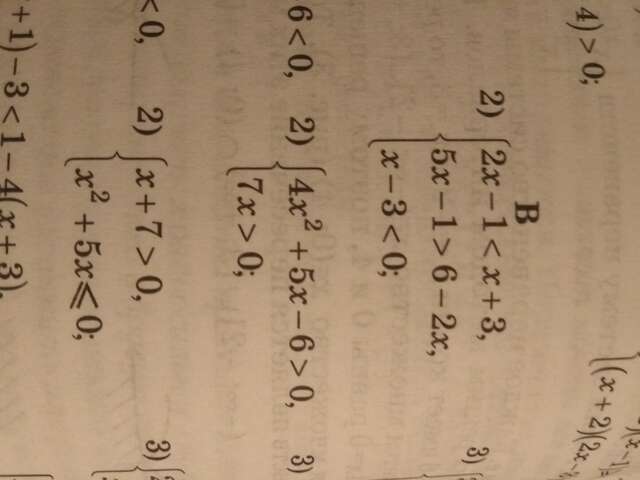 4) > 0;
(x + 2)(2x −
В
2) { 2x − 1 < x + 3,
5x − 1 > 6 − 2x,
x − 3 < 0;
3)
6 < 0,
2) { 4x² + 5x − 6 > 0,
7x > 0;
3)
< 0,
2) { x + 7 > 0,
x² + 5x ⩽ 0;
3)
+ 1) − 3 < 1 − 4(x + 3),